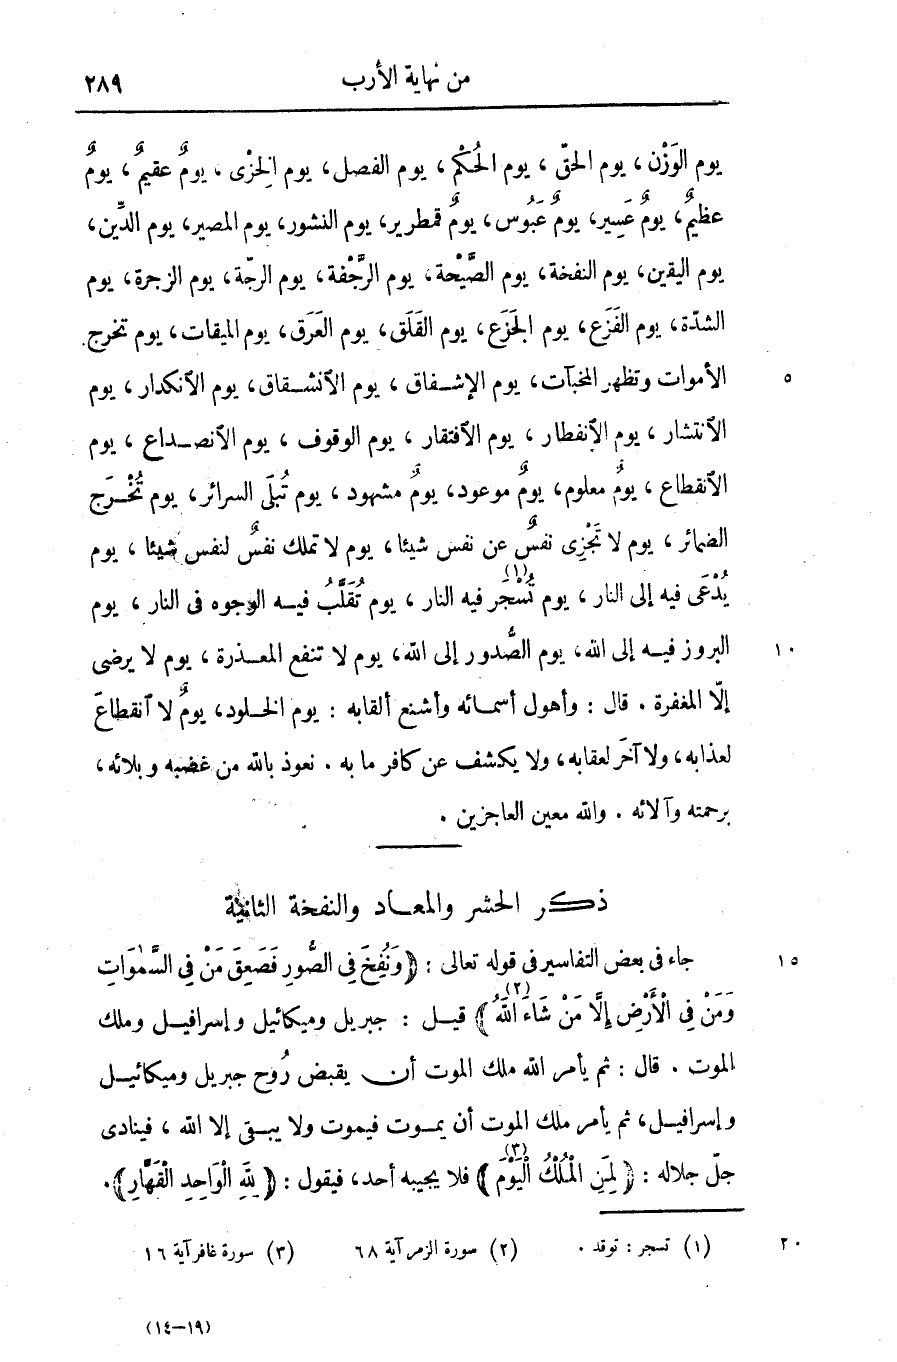 من نهاية الأرب ٢٨٩
يوم الوَزْن، يوم الحقّ، يوم الحُكْم، يوم الفصل، يوم الخِزْى، يومٌ عقيمٌ، يومٌ
عظيمٌ، يومٌ عَسِير، يومٌ عَبُوس، يومٌ قمطرير، يوم النشور، يوم المصير، يوم الدِّين،
يوم اليقين، يوم النفخة، يوم الصَّيْحة، يوم الرَّجْفة، يوم الرجّة، يوم الزجرة، يوم
الشدّة، يوم الفَزَع، يوم الجَزَع، يوم القَلَق، يوم العَرَق، يوم الميقات، يوم تخرج
الأموات وتظهر المخبآت، يوم الإشفاق، يوم الآنشقاق، يوم الآنكدار، يوم ٥
الآنتشار، يوم الآنفطار، يوم الآفتقار، يوم الوقوف، يوم الآنصداع، يوم
الآنقطاع، يومٌ معلوم، يومٌ موعود، يومٌ مشهود، يوم تُبلَى السرائر، يوم تُخْرَج
الضمائر، يوم لا تَجْزِى نفسٌ عن نفس شيئا، يوم لا تملك نفسٌ لنفس شيئا، يوم
يُدْعَى فيه إلى النار، يوم تُسْجَر(١) فيه النار، يوم تُقَلَّبُ فيه الوجوه فى النار، يوم
البروز فيه إلى الله، يوم الصُّدور إلى الله، يوم لا تنفع المعذرة، يوم لا يرضى ١٠
إلّا المغفرة. قال: وأهول أسمائه وأشنع ألقابه: يوم الخلود، يومٌ لا آنقطاعَ
لعذابه، ولا آخرَ لعقابه، ولا يكشف عن كافر ما به. نعوذ بالله من غضبه وبلائه،
برحمته وآلائه. والله معين العاجزين.
ذكر الحشر والمعاد والنفخة الثانية
جاء فى بعض التفاسير فى قوله تعالى: ﴿وَنُفِخَ فِي الصُّورِ فَصَعِقَ مَنْ فِي السَّمٰوَاتِ ١٥
وَمَنْ فِي الْأَرْضِ إِلَّا مَنْ شَاءَ اللهُ(٢)﴾ قيل: جبريل وميكائيل وإسرافيل وملك
الموت. قال: ثم يأمر الله ملك الموت أن يقبض رُوح جبريل وميكائيل
وإسرافيل، ثم يأمر ملك الموت أن يموت فيموت ولا يبقى إلا الله، فينادى
جلّ جلاله: ﴿لِمَنِ الْمُلْكُ الْيَوْمَ(٣)﴾ فلا يجيبه أحد، فيقول: ﴿لِلّٰهِ الْوَاحِدِ الْقَهَّارِ﴾.
(١) تسجر: توقد. (٢) سورة الزمر آية ٦٨ (٣) سورة غافر آية ١٦ ٢٠
(١٤-١٩)